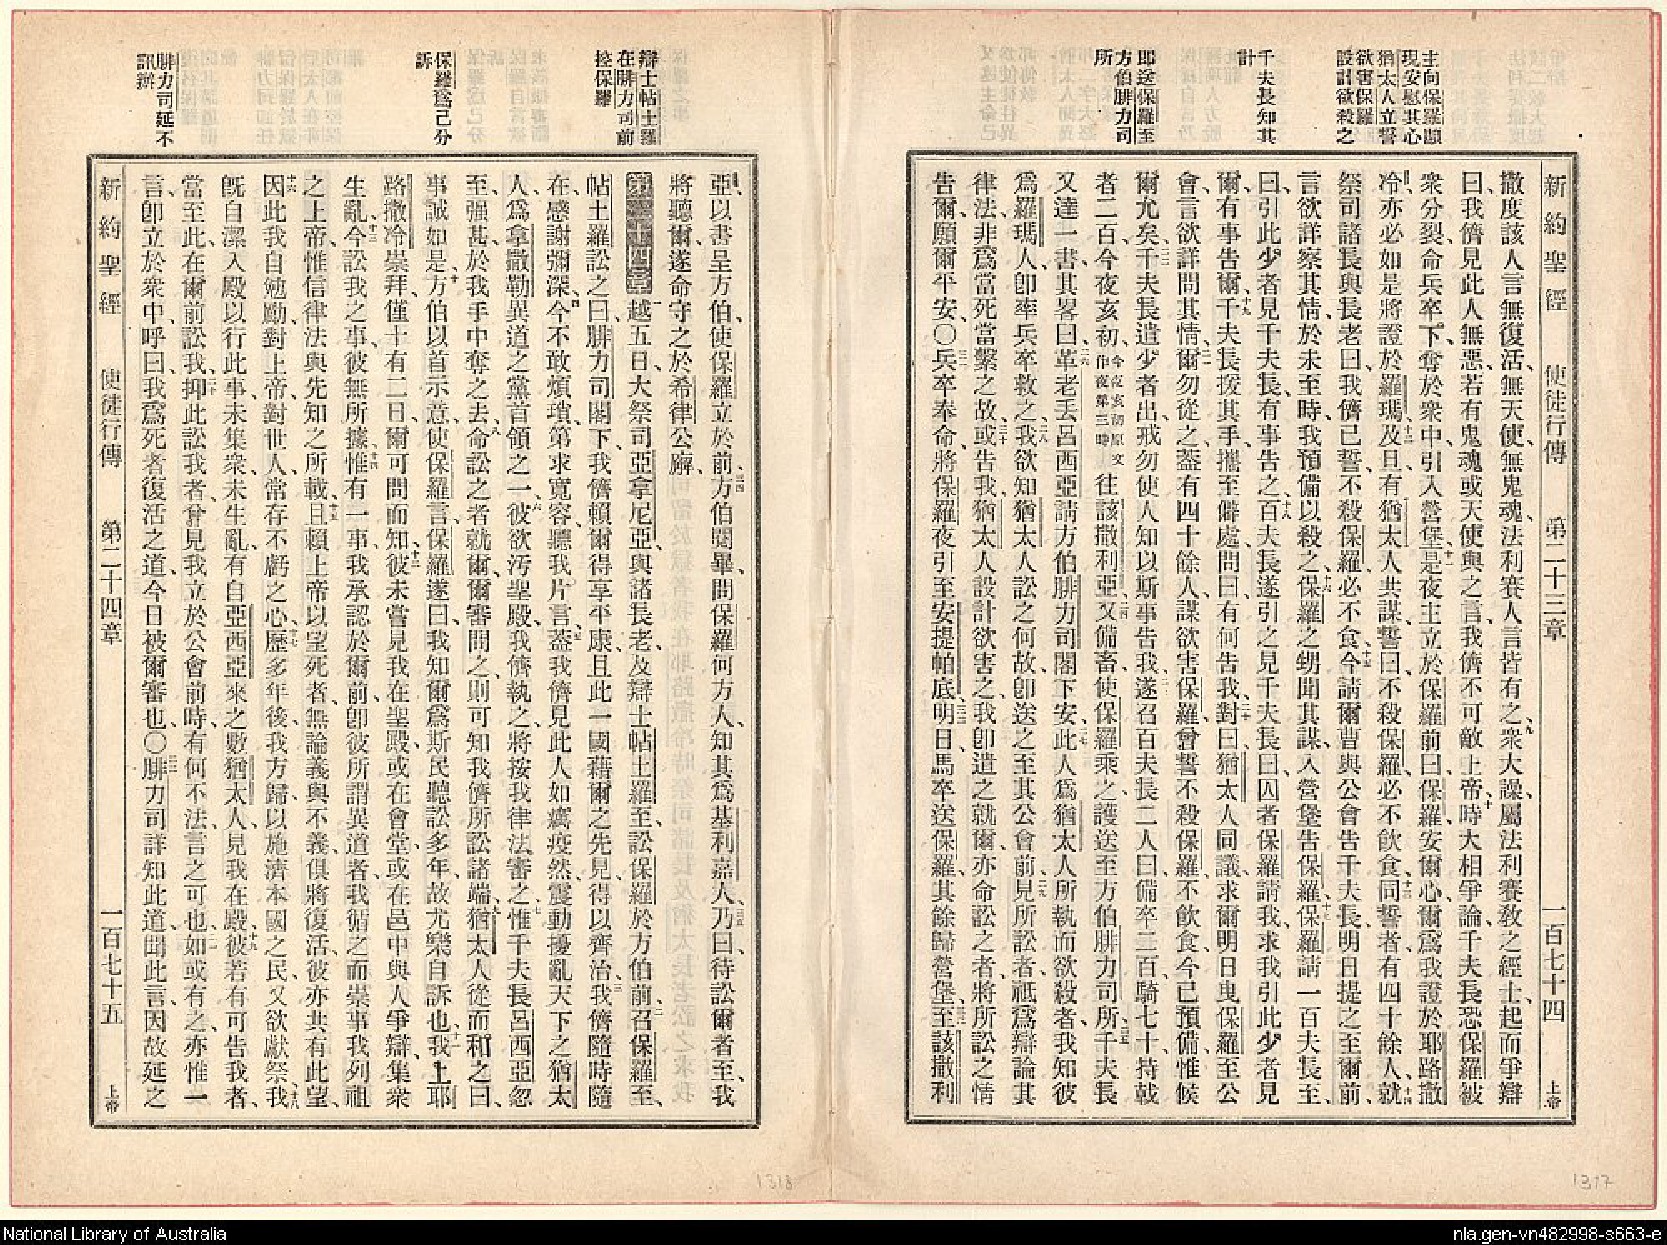 新約聖經　使徒行傳　第二十三章　一百七十四　上帝
主向保羅顯
現安慰其心
猶太人立誓
欲害保羅
設計欲殺之
千夫長知其
計
即送保羅至
方伯腓力司
所
撒度該人言無復活、無天使、無鬼魂、法利賽人言皆有之、九衆大譟、屬法利賽敎之經士、起而爭辯
曰、我儕見此人無惡、若有鬼魂或天使與之言、我儕不可敵上帝、十時大相爭論、千夫長恐保羅被
衆分裂、命兵卒下、奪於衆中、引入營堡、十一是夜主立於保羅前曰、保羅安爾心、爾爲我證於耶路撒
冷、亦必如是將證於羅瑪、十二及旦、有猶太人共謀、誓曰、不殺保羅、必不飲食、十三同誓者有四十餘人、十四就
祭司諸長與長老曰、我儕已誓、不殺保羅、必不食、十五今請爾曹與公會告千夫長、明日提之至爾前、
言欲詳察其情、於未至時、我預備以殺之、十六保羅之甥聞其謀、入營堡告保羅、十七保羅請一百夫長至、
曰、引此少者見千夫長、有事告之、十八百夫長遂引之見千夫長曰、囚者保羅請我、求我引此少者見
爾、有事告爾、十九千夫長按其手、攜至僻處、問曰、有何告我、二十對曰、猶太人同議求爾、明日曳保羅至公
會、言欲詳問其情、二一爾勿從之、蓋有四十餘人、謀欲害保羅、曾誓不殺保羅不飲食、今已預備、惟候
爾允矣、二二千夫長遣少者出、戒勿使人知以斯事告我、二三遂召百夫長二人曰、備卒二百、騎七十、持戟
者二百、今夜亥初、今夜亥初原文作夜第三時往該撒利亞、二四又備畜使保羅乘之、護送至方伯腓力司所、二五千夫長
又達一書、其畧曰、二六革老丟呂西亞請方伯腓力司閣下安、二七此人爲猶太人所執、而欲殺者、我知彼
爲羅瑪人、即率兵卒救之、二八我欲知猶太人訟之何故、即送之至其公會前、二九見所訟者、祇爲辯論其
律法、非爲當死當繫之故、三十或告我、猶太人設計欲害之、我即遣之就爾、亦命訟之者、將所訟之情
告爾、願爾平安、〇三一兵卒奉命、將保羅夜引至安提帕底、三二明日馬卒送保羅、其餘歸營堡、三三至該撒利
辯士帖土羅
在腓力司前
控保羅
保羅爲己分
訴
腓力司延不
訊辦
亞、以書呈方伯、使保羅立於前、三四方伯閱畢、問保羅何方人、知其爲基利嘉人、三五乃曰、待訟爾者至、我
將聽爾、遂命守之於希律公廨、
第二十四章　一越五日、大祭司亞拿尼亞與諸長老、及辯士帖土羅至、訟保羅於方伯前、二召保羅至、
帖土羅訟之曰、腓力司閣下、我儕賴爾得享平康、且此一國藉爾之先見得以齊治、三我儕隨時隨
在、感謝彌深、四今不敢煩瑣、第求寬容、聽我片言、五蓋我儕見此人如癘疫然、震動擾亂天下之猶太
人、爲拿撒勒異道之黨首領之一、六彼欲汚聖殿、我儕執之、將按我律法審之、七惟千夫長呂西亞忽
至、强甚、於我手中奪之去、八命訟之者就爾、爾審問之、則可知我儕所訟諸端、九猶太人從而和之曰、
事誠如是、十方伯以首示意使保羅言、保羅遂曰、我知爾爲斯民聽訟多年、故尤樂自訴也、十一我上耶
路撒冷崇拜、僅十有二日、爾可問而知、十二彼未嘗見我在聖殿、或在會堂、或在邑中、與人爭辯集衆
生亂、十三今訟我之事、彼無所據、十四惟有一事、我承認於爾前、即彼所謂異道者、我循之而崇事我列祖
之上帝、惟信律法與先知之所載、十五且賴上帝以望死者、無論義與不義、俱將復活、彼亦共有此望、
十六因此我自勉勵、對上帝對世人、常存不虧之心、十七歷多年後、我方歸以施濟本國之民、又欲獻祭、十八我
旣自潔、入殿以行此事、未集衆、未生亂、有自亞西亞來之數猶太人、見我在殿、十九彼若有可告我者、
當至此、在爾前訟我、二十抑此訟我者、曾見我立於公會前時、有何不法、言之可也、二一如或有之、亦惟一
言、即立於衆中呼曰、我爲死者復活之道、今日被爾審也、〇二二腓力司詳知此道、聞此言、因故延之
新約聖經　使徒行傳　第二十四章　一百七十五　上帝
1318
1317
National Library of Australia
nla.gen-vn482998-s663-e